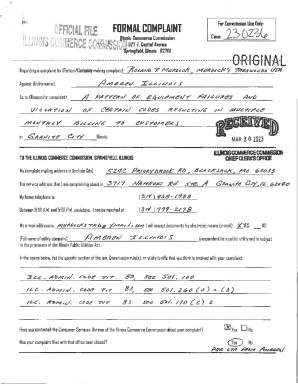 OFFICIAL FILE
ILLINOIS COMMERCE COMMISSION
FORMAL COMPLAINT
Illinois Commerce Commission
527 E. Capitol Avenue
Springfield, Illinois 62701
For Commission Use Only:
Case: 23-0236
ORIGINAL
Regarding a complaint by (Person/Company making complaint):
Against (Utility name): AMEREN ILLINOIS
As to (Reason for complaint) A PATTERN OF EQUIPMENT FAILURES AND
VIOLATION OF CERTAIN CODES RESULTING IN MULTIPLE
MONTHLY BILLING TO CUSTOMERS
RECEIVED
in GRANITE CITY Illinois.
MAR 30 2023
ILLINOIS COMMERCE COMMISSION
CHIEF CLERK'S OFFICE
TO THE ILLINOIS COMMERCE COMMISSION, SPRINGFIELD, ILLINOIS:
My complete mailing address is (include City) BLACKJACK, MO 63033
The service address that I am complaining about is 3717 NAMEOKI RD STE A GRANITE CITY IL 62040
My home telephone is
Between 8:30 A.M. and 5:00 P.M. weekdays, I can be reached at
My e-mail address is I will accept documents by electronic means (e-mail) X YES No
Full name of utility company AMEREN ILLINOIS (respondent) is a public utility and is subject
to the provisions of the Illinois Public Utilities Act.
In the space below, list the specific section of the law, Commission rule(s), or utility tariffs that you think is involved with your complaint.
ILL. ADMIN. CODE TIT. 83, SEC 501.100
ILL. ADMIN. CODE TIT 83 SEC 501.260 (a) + (b)
ILL. ADMIN. CODE TIT 83, SEC 501.170 (c) 2
Have you contacted the Consumer Services Division of the Illinois Commerce Commission about your complaint? X Yes No
Has your complaint filed with that office been closed? Yes No
PER LTR FROM AMEREN